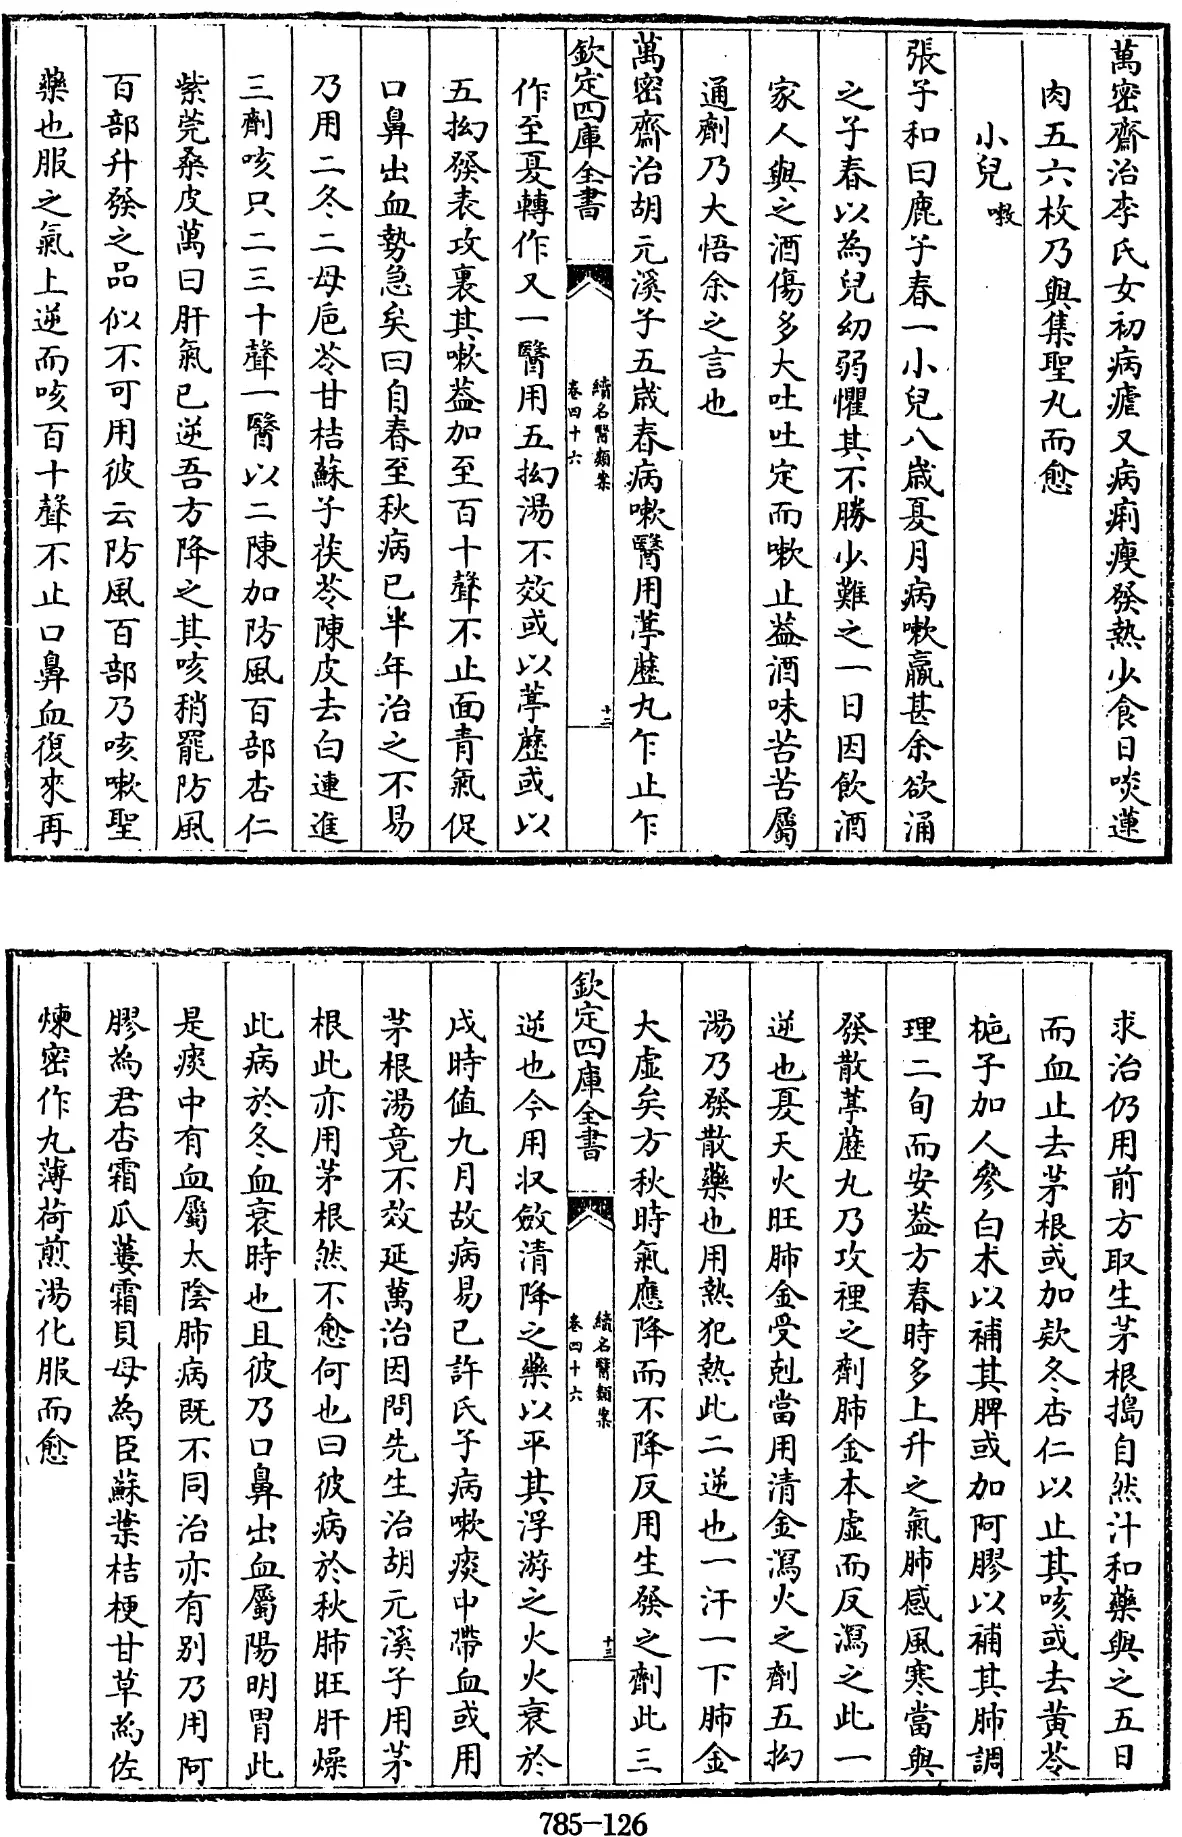 萬密齋治李氏女初病瘧又病痢瘦發熱少食日啖蓮
肉五六枚乃與集聖丸而愈
小兒嗽
張子和曰鹿子春一小兒八歲夏月病嗽羸甚余欲涌
之子春以為兒幼弱懼其不勝少難之一日因飲酒
家人與之酒傷多大吐吐定而嗽止蓋酒味苦苦屬
通劑乃大悟余之言也
萬密齋治胡元溪子五歲春病嗽醫用葶藶丸乍止乍
欽定四庫全書
續名醫類案
卷四十六
十二
作至夏轉作又一醫用五拗湯不效或以葶藶或以
五拗發表攻裏其嗽益加至百十聲不止面青氣促
口鼻出血勢急矣曰自春至秋病已半年治之不易
乃用二冬二母巵苓甘桔蘇子茯苓陳皮去白連進
三劑咳只二三十聲一醫以二陳加防風百部杏仁
紫莞桑皮萬曰肝氣已逆吾方降之其咳稍罷防風
百部升發之品似不可用彼云防風百部乃咳嗽聖
藥也服之氣上逆而咳百十聲不止口鼻血復來再
求治仍用前方取生茅根搗自然汁和藥與之五日
而血止去茅根或加欵冬杏仁以止其咳或去黄芩
梔子加人參白术以補其脾或加阿膠以補其肺調
理二旬而安葢方春時多上升之氣肺感風寒當與
發散葶藶丸乃攻裡之劑肺金本虛而反瀉之此一
逆也夏天火旺肺金受剋當用清金瀉火之劑五拗
湯乃發散藥也用熱犯熱此二逆也一汗一下肺金
大虛矣方秋時氣應降而不降反用生發之劑此三
欽定四庫全書
續名醫類案
卷四十六
十三
逆也今用収斂清降之藥以平其浮游之火火衰於
戌時值九月故病易已許氏子病嗽痰中帶血或用
茅根湯竟不效延萬治因問先生治胡元溪子用茅
根此亦用茅根然不愈何也曰彼病於秋肺旺肝燥
此病於冬血衰時也且彼乃口鼻出血屬陽明胃此
是痰中有血屬太陰肺病既不同治亦有别乃用阿
膠為君杏霜瓜蔞霜貝母為臣蘇葉桔梗甘草為佐
煉密作丸薄荷煎湯化服而愈
785-126